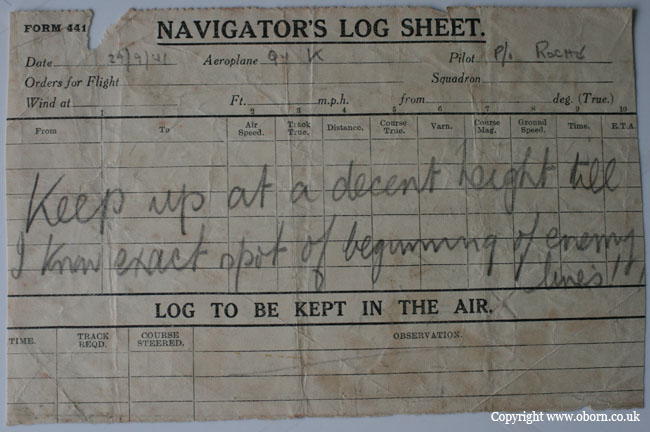 FORM 441
NAVIGATOR'S LOG SHEET.
Date 24/9/41 Aeroplane K Pilot P/o
Orders for Flight Squadron
Wind at Ft. m.p.h. from deg. (True.)
1 2 3 4 5 6 7 8 9 10
From To Air Speed. Track True. Distance. Course True. Varn. Course Mag. Ground Speed. Time. E.T.A.
Keep up at a decent height till
I know exact spot of beginning of enemy
lines!!
LOG TO BE KEPT IN THE AIR.
TIME. TRACK REQD. COURSE STEERED. OBSERVATION.
Copyright www.oborn.co.uk